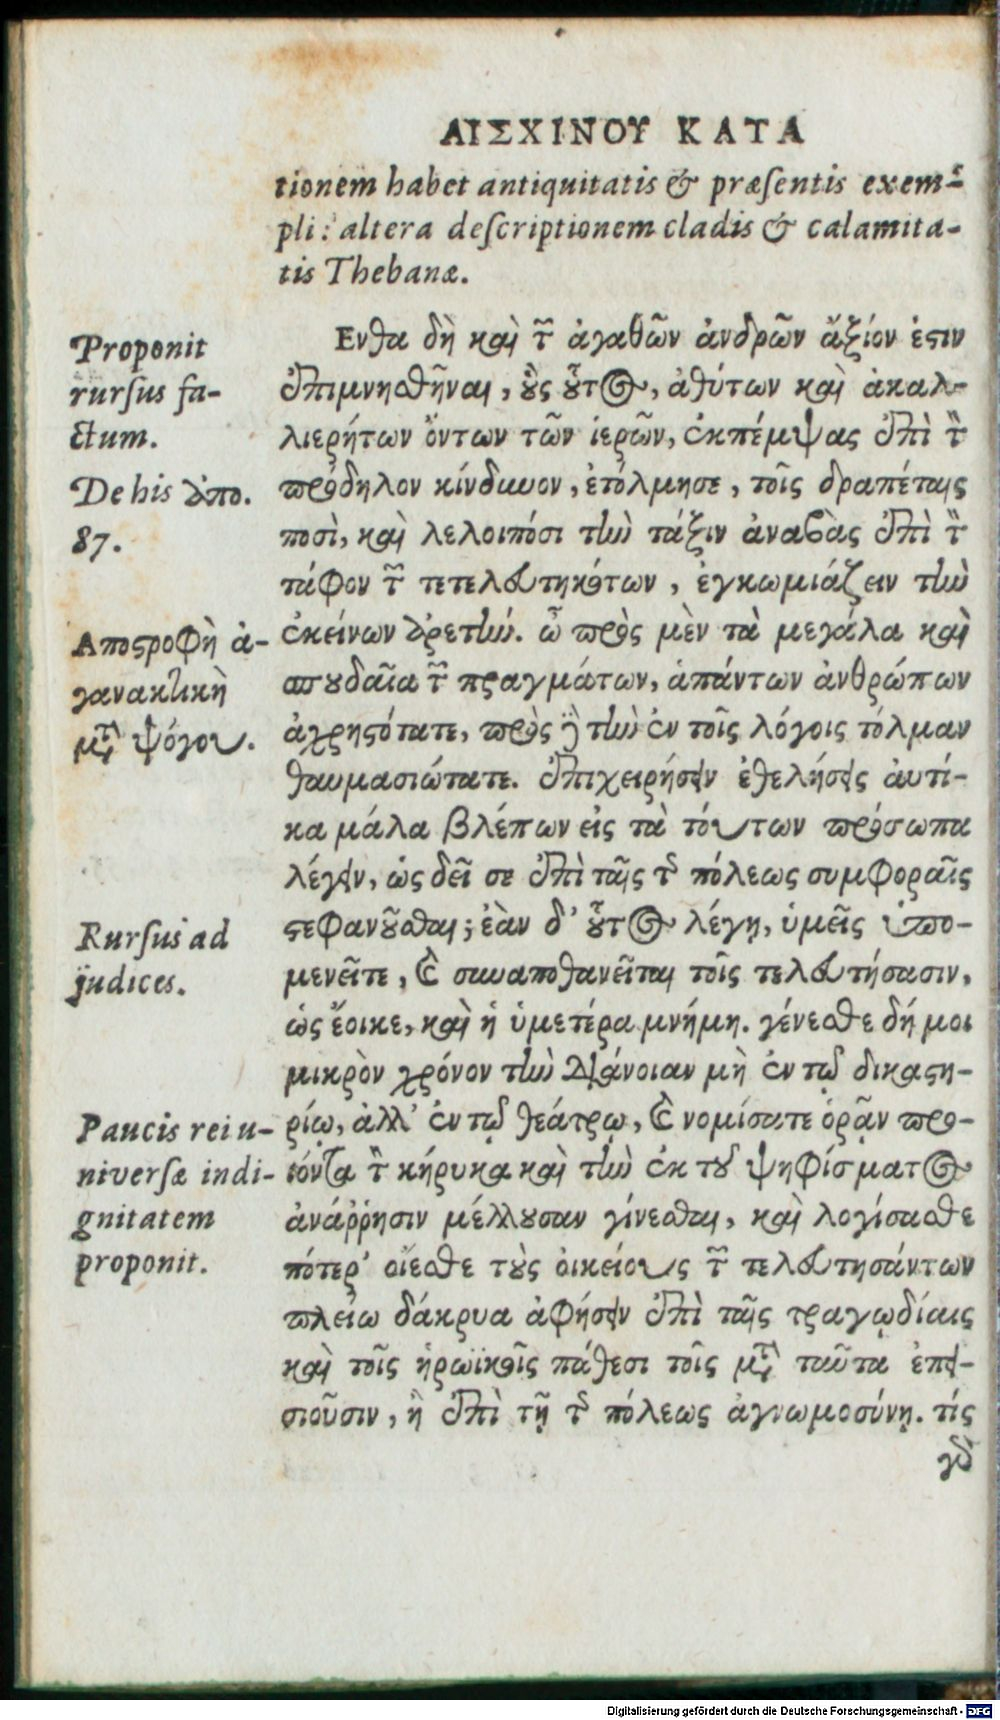 ΑΙΣΧΙΝΟΥ ΚΑΤΑ
tionem habet antiquitatis & præsentis exem-
pli: altera descriptionem cladis & calamita-
tis Thebanæ.
Proponit
rursus fa-
ctum.
De his ἀπο.
87.
Αποστροφὴ ἀ-
γανακτικὴ
μετὰ ψόγου.
Rursus ad
judices.
Paucis rei u-
niversæ indi-
gnitatem
proponit.
Ενθα δὴ καὶ τῶν ἀγαθῶν ἀνδρῶν ἄξιόν ἐστιν
ἐπιμνησθῆναι, οὓς οὗτος, ἀθύτων καὶ ἀκαλ-
λιερήτων ὄντων τῶν ἱερῶν, ἐκπέμψας ἐπὶ τὸν
πρόδηλον κίνδυνον, ἐτόλμησε, τοῖς δραπέταις
ποσὶ, καὶ λελοιπόσι τὴν τάξιν ἀναβὰς ἐπὶ τὸν
τάφον τῶν τετελευτηκότων, ἐγκωμιάζειν τὴν
ἐκείνων ἀρετήν. ὦ πρὸς μὲν τὰ μεγάλα καὶ
σπουδαῖα τῶν πραγμάτων, ἁπάντων ἀνθρώπων
ἀχρηστότατε, πρὸς δὲ τὴν ἐν τοῖς λόγοις τόλμαν
θαυμασιώτατε. ἐπιχειρήσειν ἐθελήσεις αὐτί-
κα μάλα βλέπων εἰς τὰ τούτων πρόσωπα
λέγειν, ὡς δεῖ σε ἐπὶ ταῖς τῆς πόλεως συμφοραῖς
στεφανοῦσθαι; ἐὰν δ' οὗτος λέγῃ, ὑμεῖς ὑπο-
μενεῖτε, καὶ συναποθανεῖται τοῖς τελευτήσασιν,
ὡς ἔοικε, καὶ ἡ ὑμετέρα μνήμη. γένεσθε δή μοι
μικρὸν χρόνον τὴν διάνοιαν μὴ ἐν τῷ δικαστη-
ρίῳ, ἀλλ' ἐν τῷ θεάτρῳ, καὶ νομίσατε ὁρᾷν προ-
ιόντα τὸν κήρυκα καὶ τὴν ἐκ τοῦ ψηφίσματος
ἀνάῤῥησιν μέλλουσαν γίνεσθαι, καὶ λογίσασθε
πότερ' οἴεσθε τοὺς οἰκείους τῶν τελευτησάντων
πλείω δάκρυα ἀφήσειν ἐπὶ ταῖς τραγῳδίαις
καὶ τοῖς ἡρωϊκοῖς πάθεσι τοῖς μετὰ ταῦτα ἐπει-
σιοῦσιν, ἢ ἐπὶ τῇ τῆς πόλεως ἀγνωμοσύνῃ. τίς
γὰρ
Digitalisierung gefördert durch die Deutsche Forschungsgemeinschaft - DFG